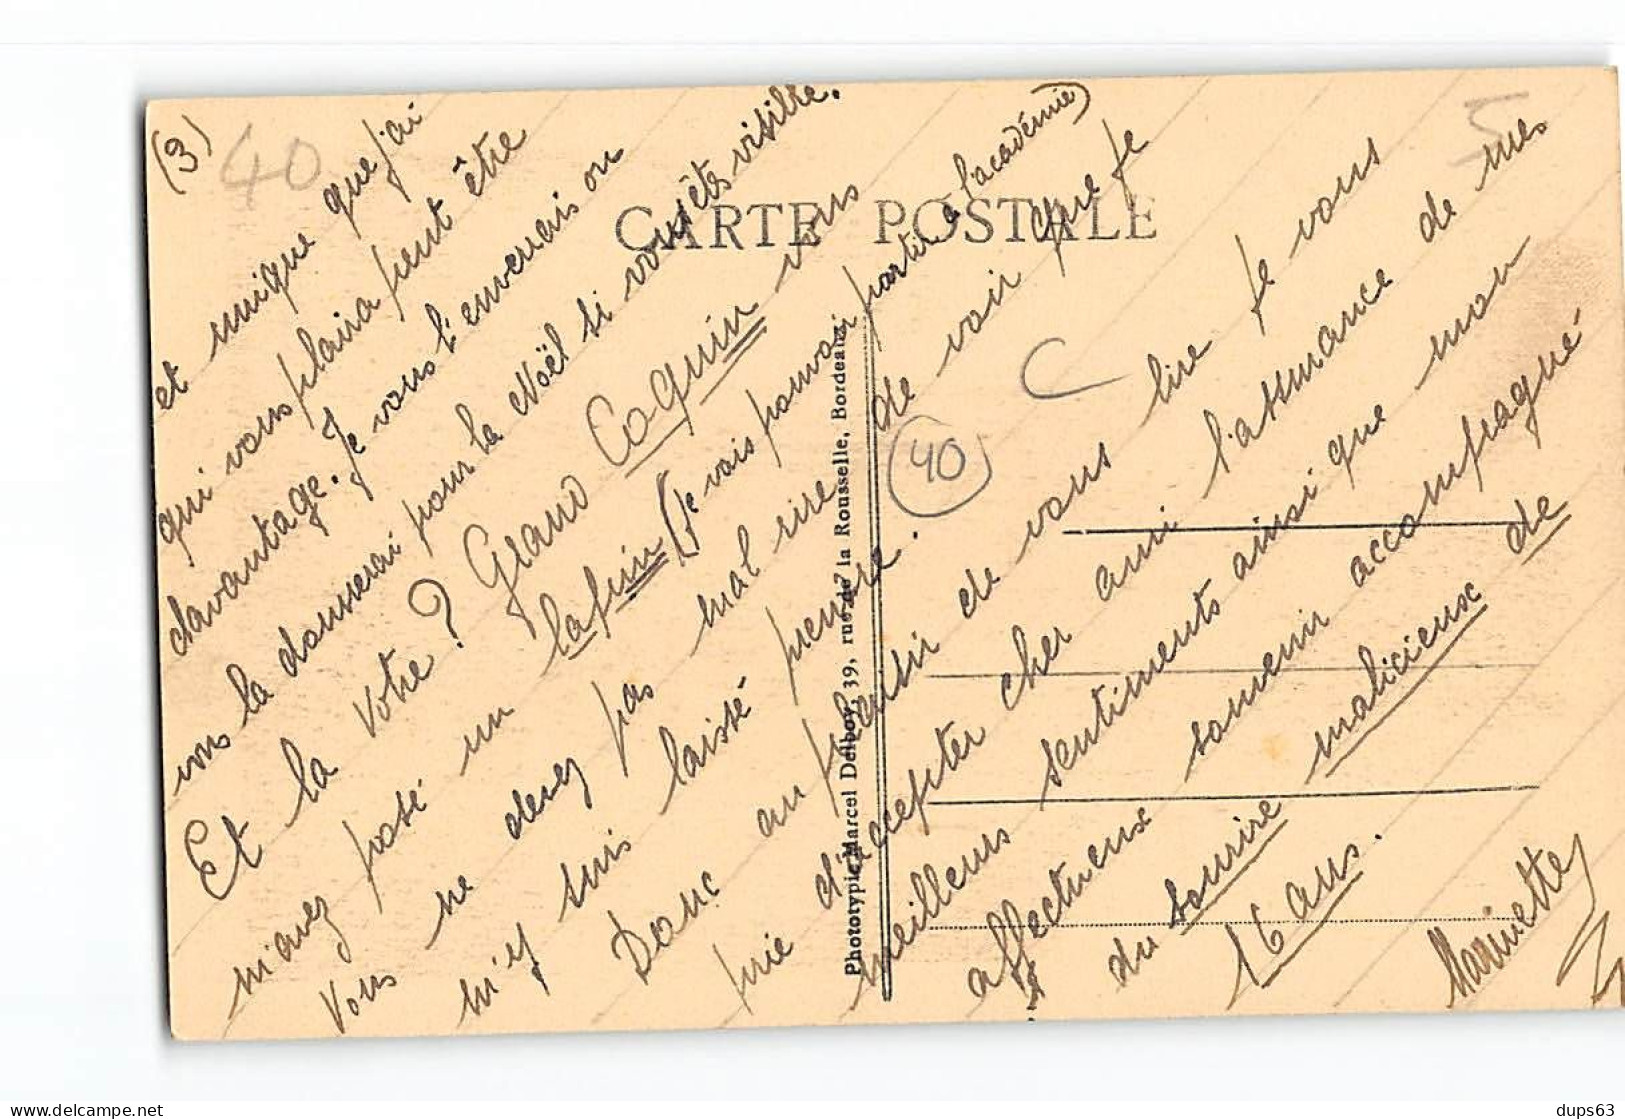 (3)
40
5
CARTE POSTALE
et unique que j'ai
qui vous plaira peut être
davantage. Je vous l'enverrais ou
vous la donnerai pour la Noël si vous êtes visible.
Et la votre ? Grand Coquin vous
m'avez posé un lapin (Je vais pouvoir partir à l'académie)
Vous ne devez pas mal rire de voir que je
m'y suis laissé prendre.
Donc au plaisir de vous lire je vous
prie d'accepter cher ami l'assurance de mes
meilleurs sentiments ainsi que mon
affectueux souvenir accompagné
du sourire malicieux de
16 ans.
Mariette
40
Phototypie Marcel Delboy, 39, rue de la Rousselle, Bordeaux
delcampe.net
dups63